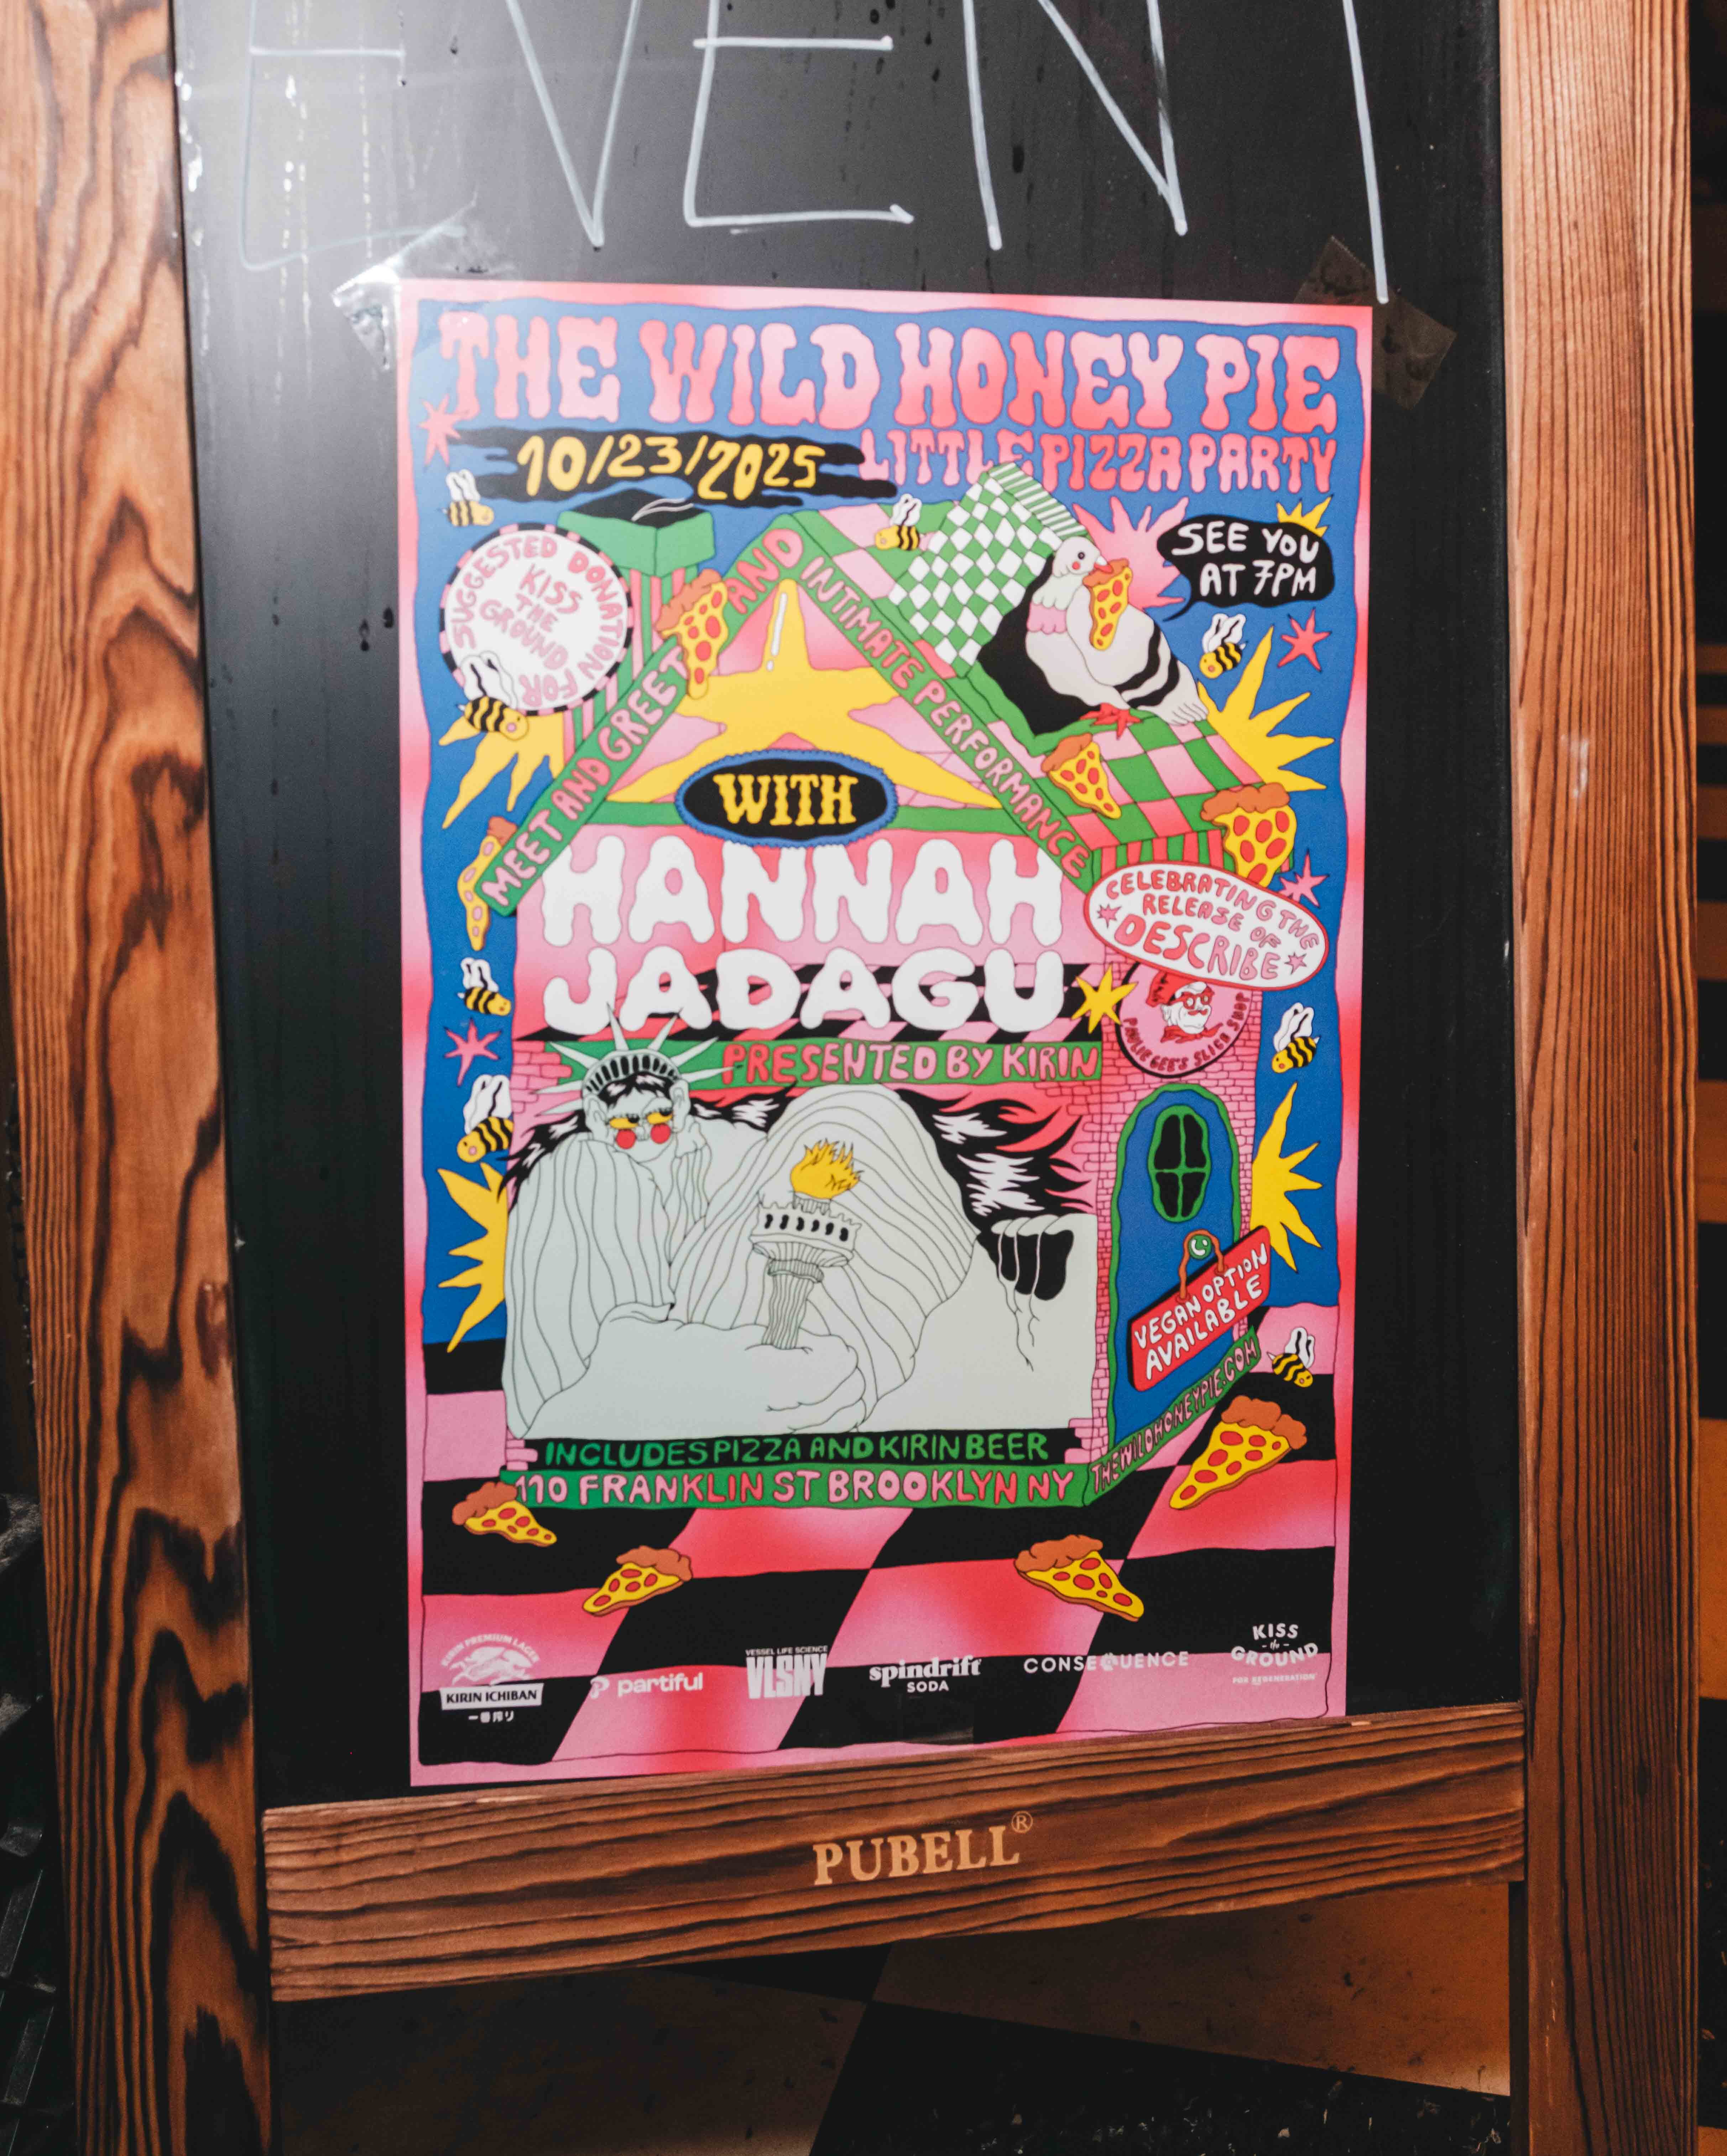 EVENT
THE WILD HONEY PIE
10/23/2025
LITTLE PIZZA PARTY
SEE YOU
AT 7PM
SUGGESTED DONATION FOR
KISS
THE
GROUND
MEET AND GREET
AND INTIMATE PERFORMANCE
WITH
HANNAH
JADAGU
CELEBRATING THE
RELEASE OF
DESCRIBE
PAULIE GEE'S SLICE SHOP
PRESENTED BY KIRIN
VEGAN OPTION
AVAILABLE
THEWILDHONEYPIE.COM
INCLUDES PIZZA AND KIRIN BEER
110 FRANKLIN ST BROOKLYN NY
KIRIN PREMIUM LAGER
KIRIN ICHIBAN
一番搾り
partiful
VESSEL LIFE SCIENCE
VLSNY
spindrift
SODA
CONSEQUENCE
KISS
the
GROUND
FOR REGENERATION
PUBELL®